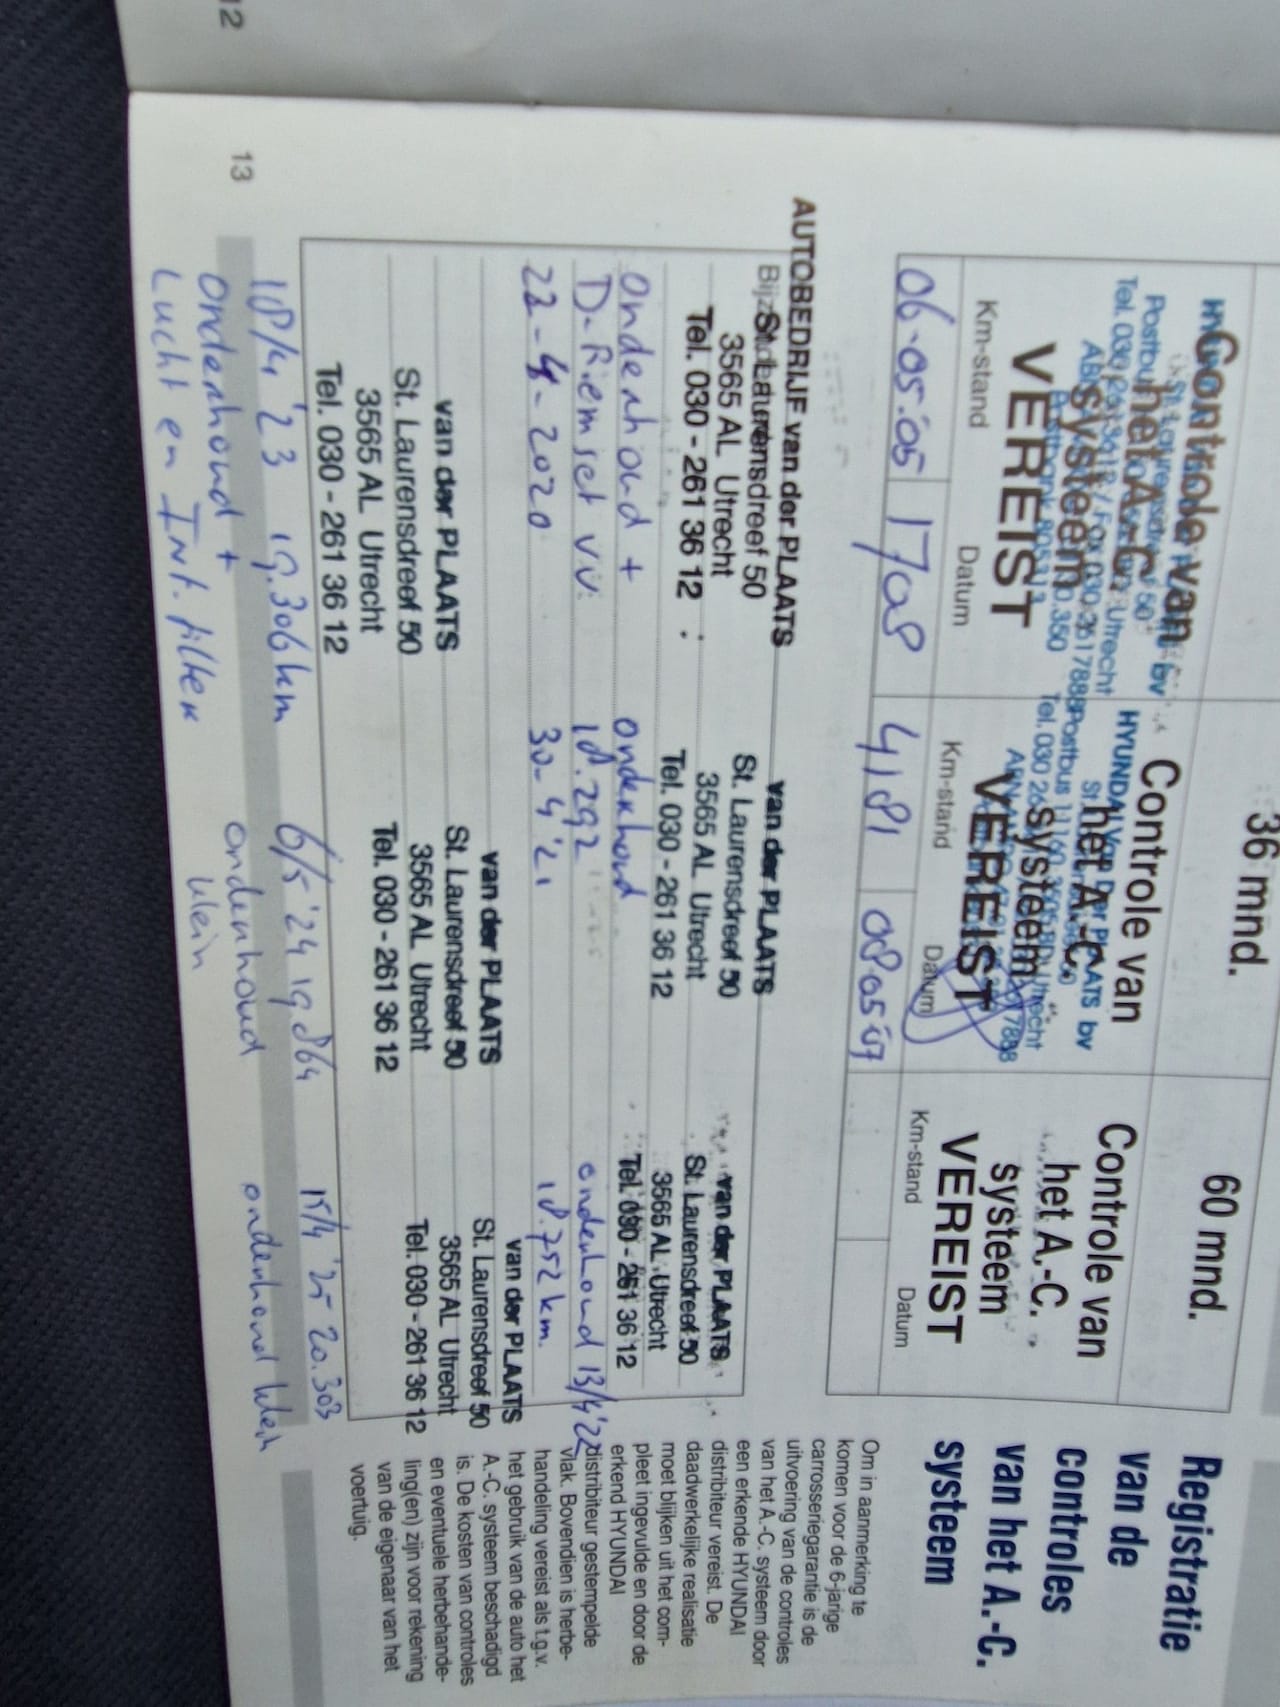 12
36 mnd.
60 mnd.
Registratie
van de
controles
van het A.-C.
systeem
Controle van
het A.-C.
systeem
VEREIST
Controle van
het A.-C.
systeem
VEREIST
Controle van
het A.-C.
systeem
VEREIST
HYUNDAI Van Der PLAATS bv
Km-stand
Datum
Km-stand
Datum
Km-stand
Datum
06-05-05
1708
4181
08 05 07
Om in aanmerking te
komen voor de 6-jarige
carrosseriegarantie is de
uitvoering van de controles
van het A.-C. systeem door
een erkende HYUNDAI
distributeur vereist. De
daadwerkelijke realisatie
moet blijken uit het com-
pleet ingevulde en door de
erkend HYUNDAI
distributeur gestempelde
vlak. Bovendien is herbe-
handeling vereist als t.g.v.
het gebruik van de auto het
A.-C. systeem beschadigd
is. De kosten van controles
en eventuele herbehande-
ling(en) zijn voor rekening
van de eigenaar van het
voertuig.
AUTOBEDRIJF van der PLAATS
St. Laurensdreef 50
3565 AL Utrecht
Tel. 030 - 261 36 12
onderhoud +
D-Riemset vv.
22-4-2020
van der PLAATS
St. Laurensdreef 50
3565 AL Utrecht
Tel. 030 - 261 36 12
onderhoud
18.292
30-4'21
van der PLAATS
St. Laurensdreef 50
3565 AL Utrecht
Tel. 030 - 261 36 12
onderhoud 13/4'22
18.752 km.
van der PLAATS
St. Laurensdreef 50
3565 AL Utrecht
Tel. 030 - 261 36 12
18/4 '23 19.306 km
onderhoud +
Lucht en Int. filter
van der PLAATS
St. Laurensdreef 50
3565 AL Utrecht
Tel. 030 - 261 36 12
6/5 '24 19.864
onderhoud
klein
van der PLAATS
St. Laurensdreef 50
3565 AL Utrecht
Tel. 030 - 261 36 12
15/4 '25 20.303
onderhoud klein
13